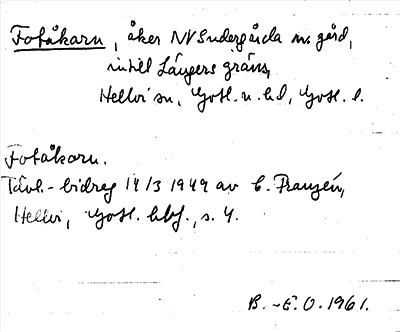 Fotåkarn, åker NV Sudergårda m. gård,
intill Långers gräns,
Hellvi sn, Gotl. n. hd, Gotl. l.
Fotåkarn.
Tävl.-bidrag 14/3 1949 av E. Franzén,
Hellvi, Gotl. s. 4.
B.-E. O. 1961.